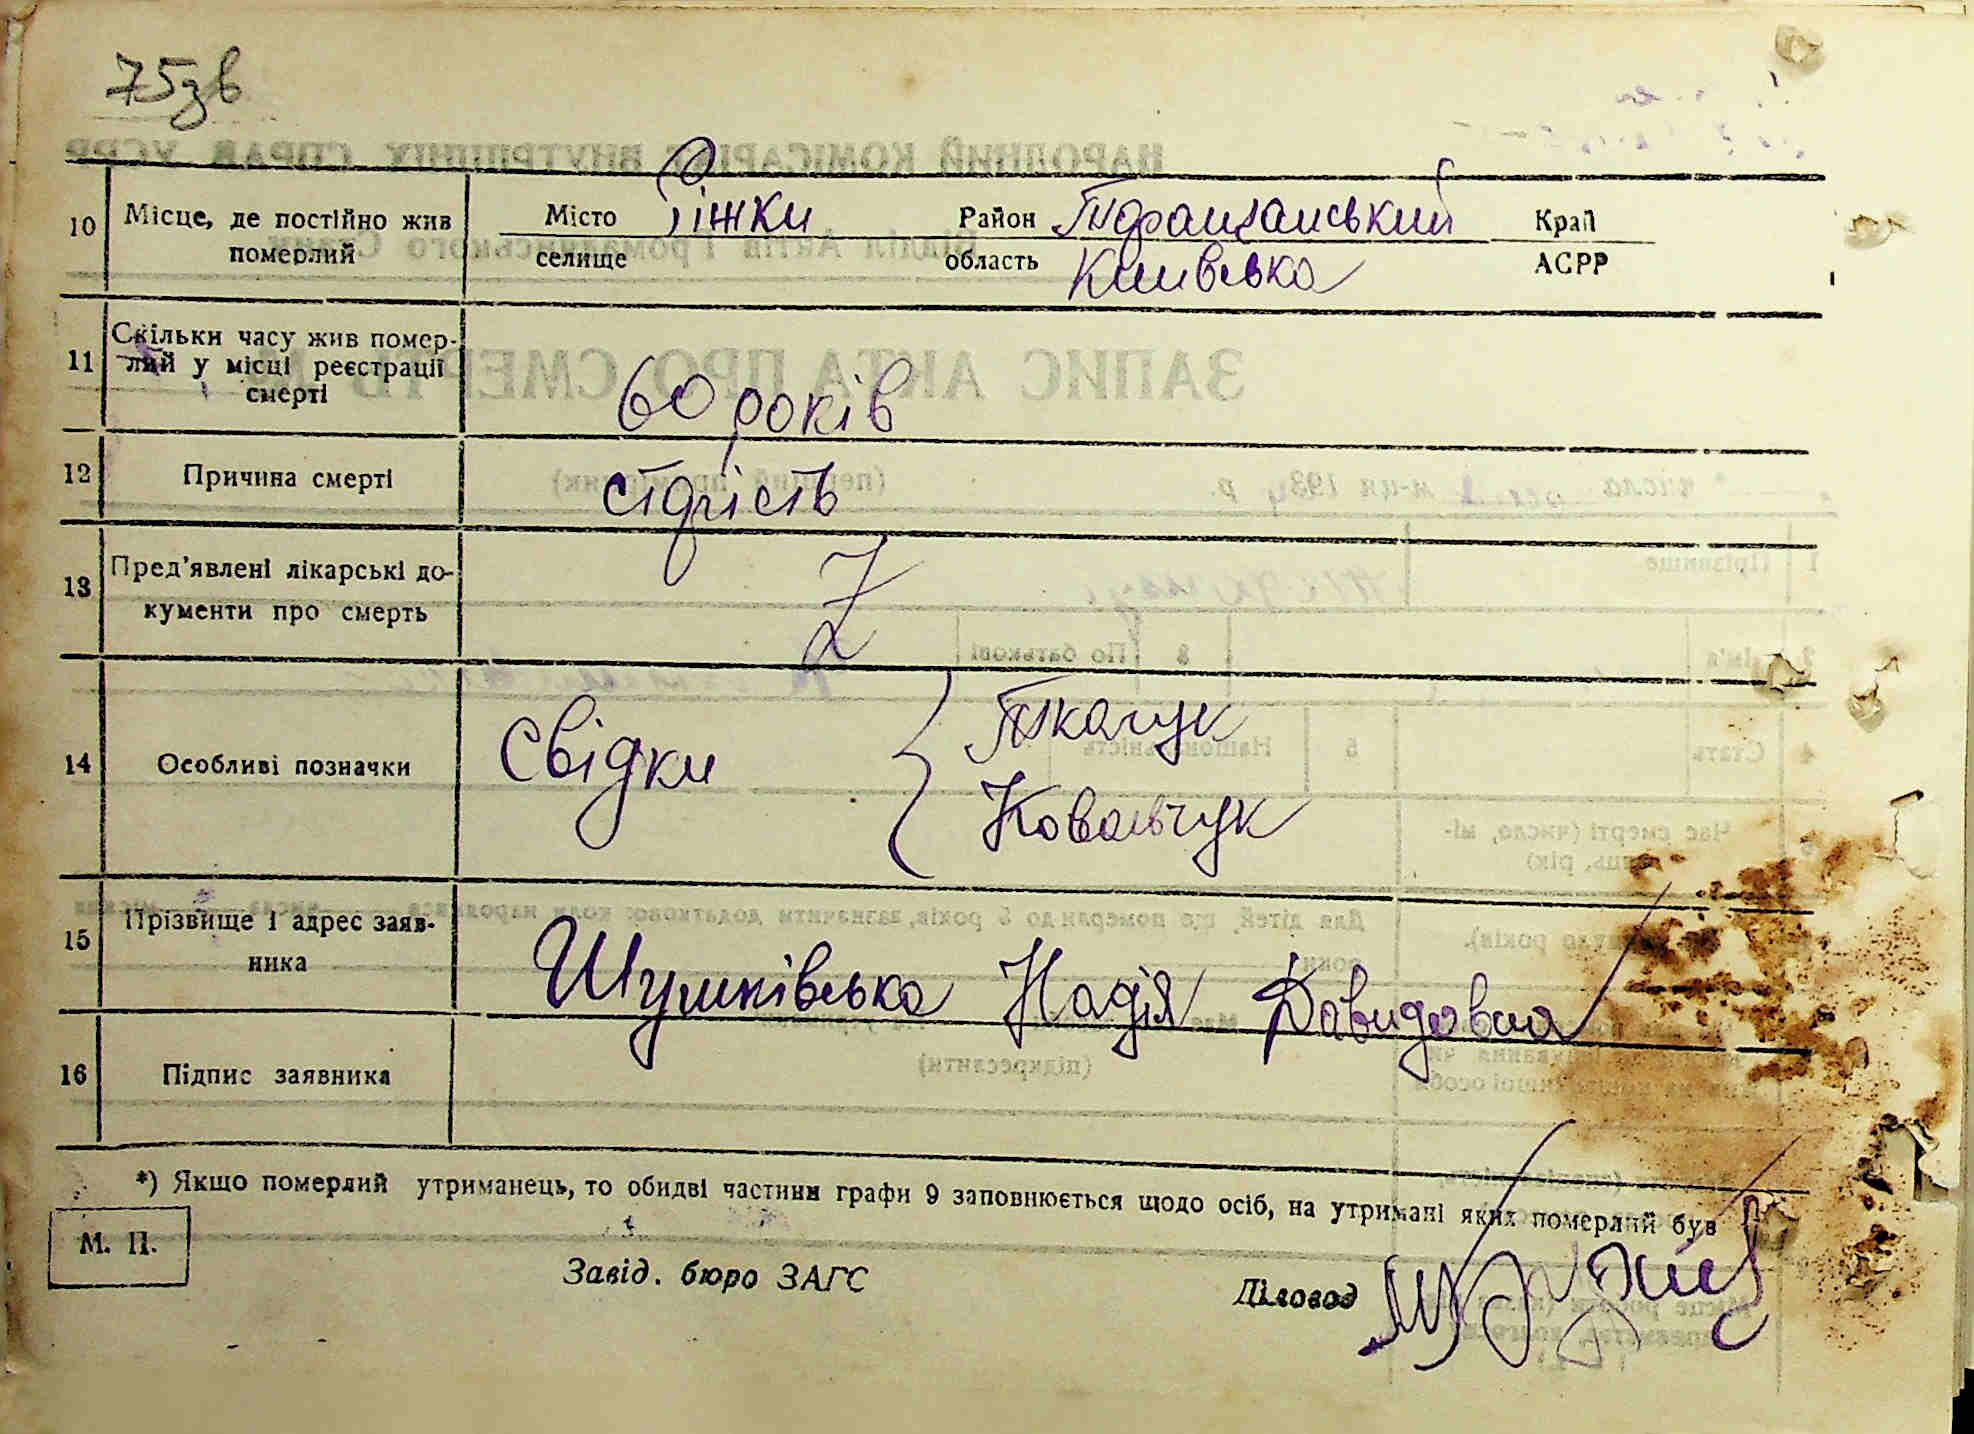 75зв
10 Місце, де постійно жив померлий
Місто Ріжки Район Таращанський Край
селище область Київська АСРР
11 Скільки часу жив помер-
лий у місці реєстрації
смерті
60 років
12 Причина смерті старість
13 Пред'явлені лікарські до-
кументи про смерть
14 Особливі позначки Свідки Ткачук
Ковальчук
15 Прізвище і адрес заяв-
ника
Шумківська Надія Давидовна
16 Підпис заявника
*) Якщо померлий утриманець, то обидві частини графи 9 заповнюється щодо осіб, на утримані яких померлий був
М. П.
Завід. бюро ЗАГС
Діловод